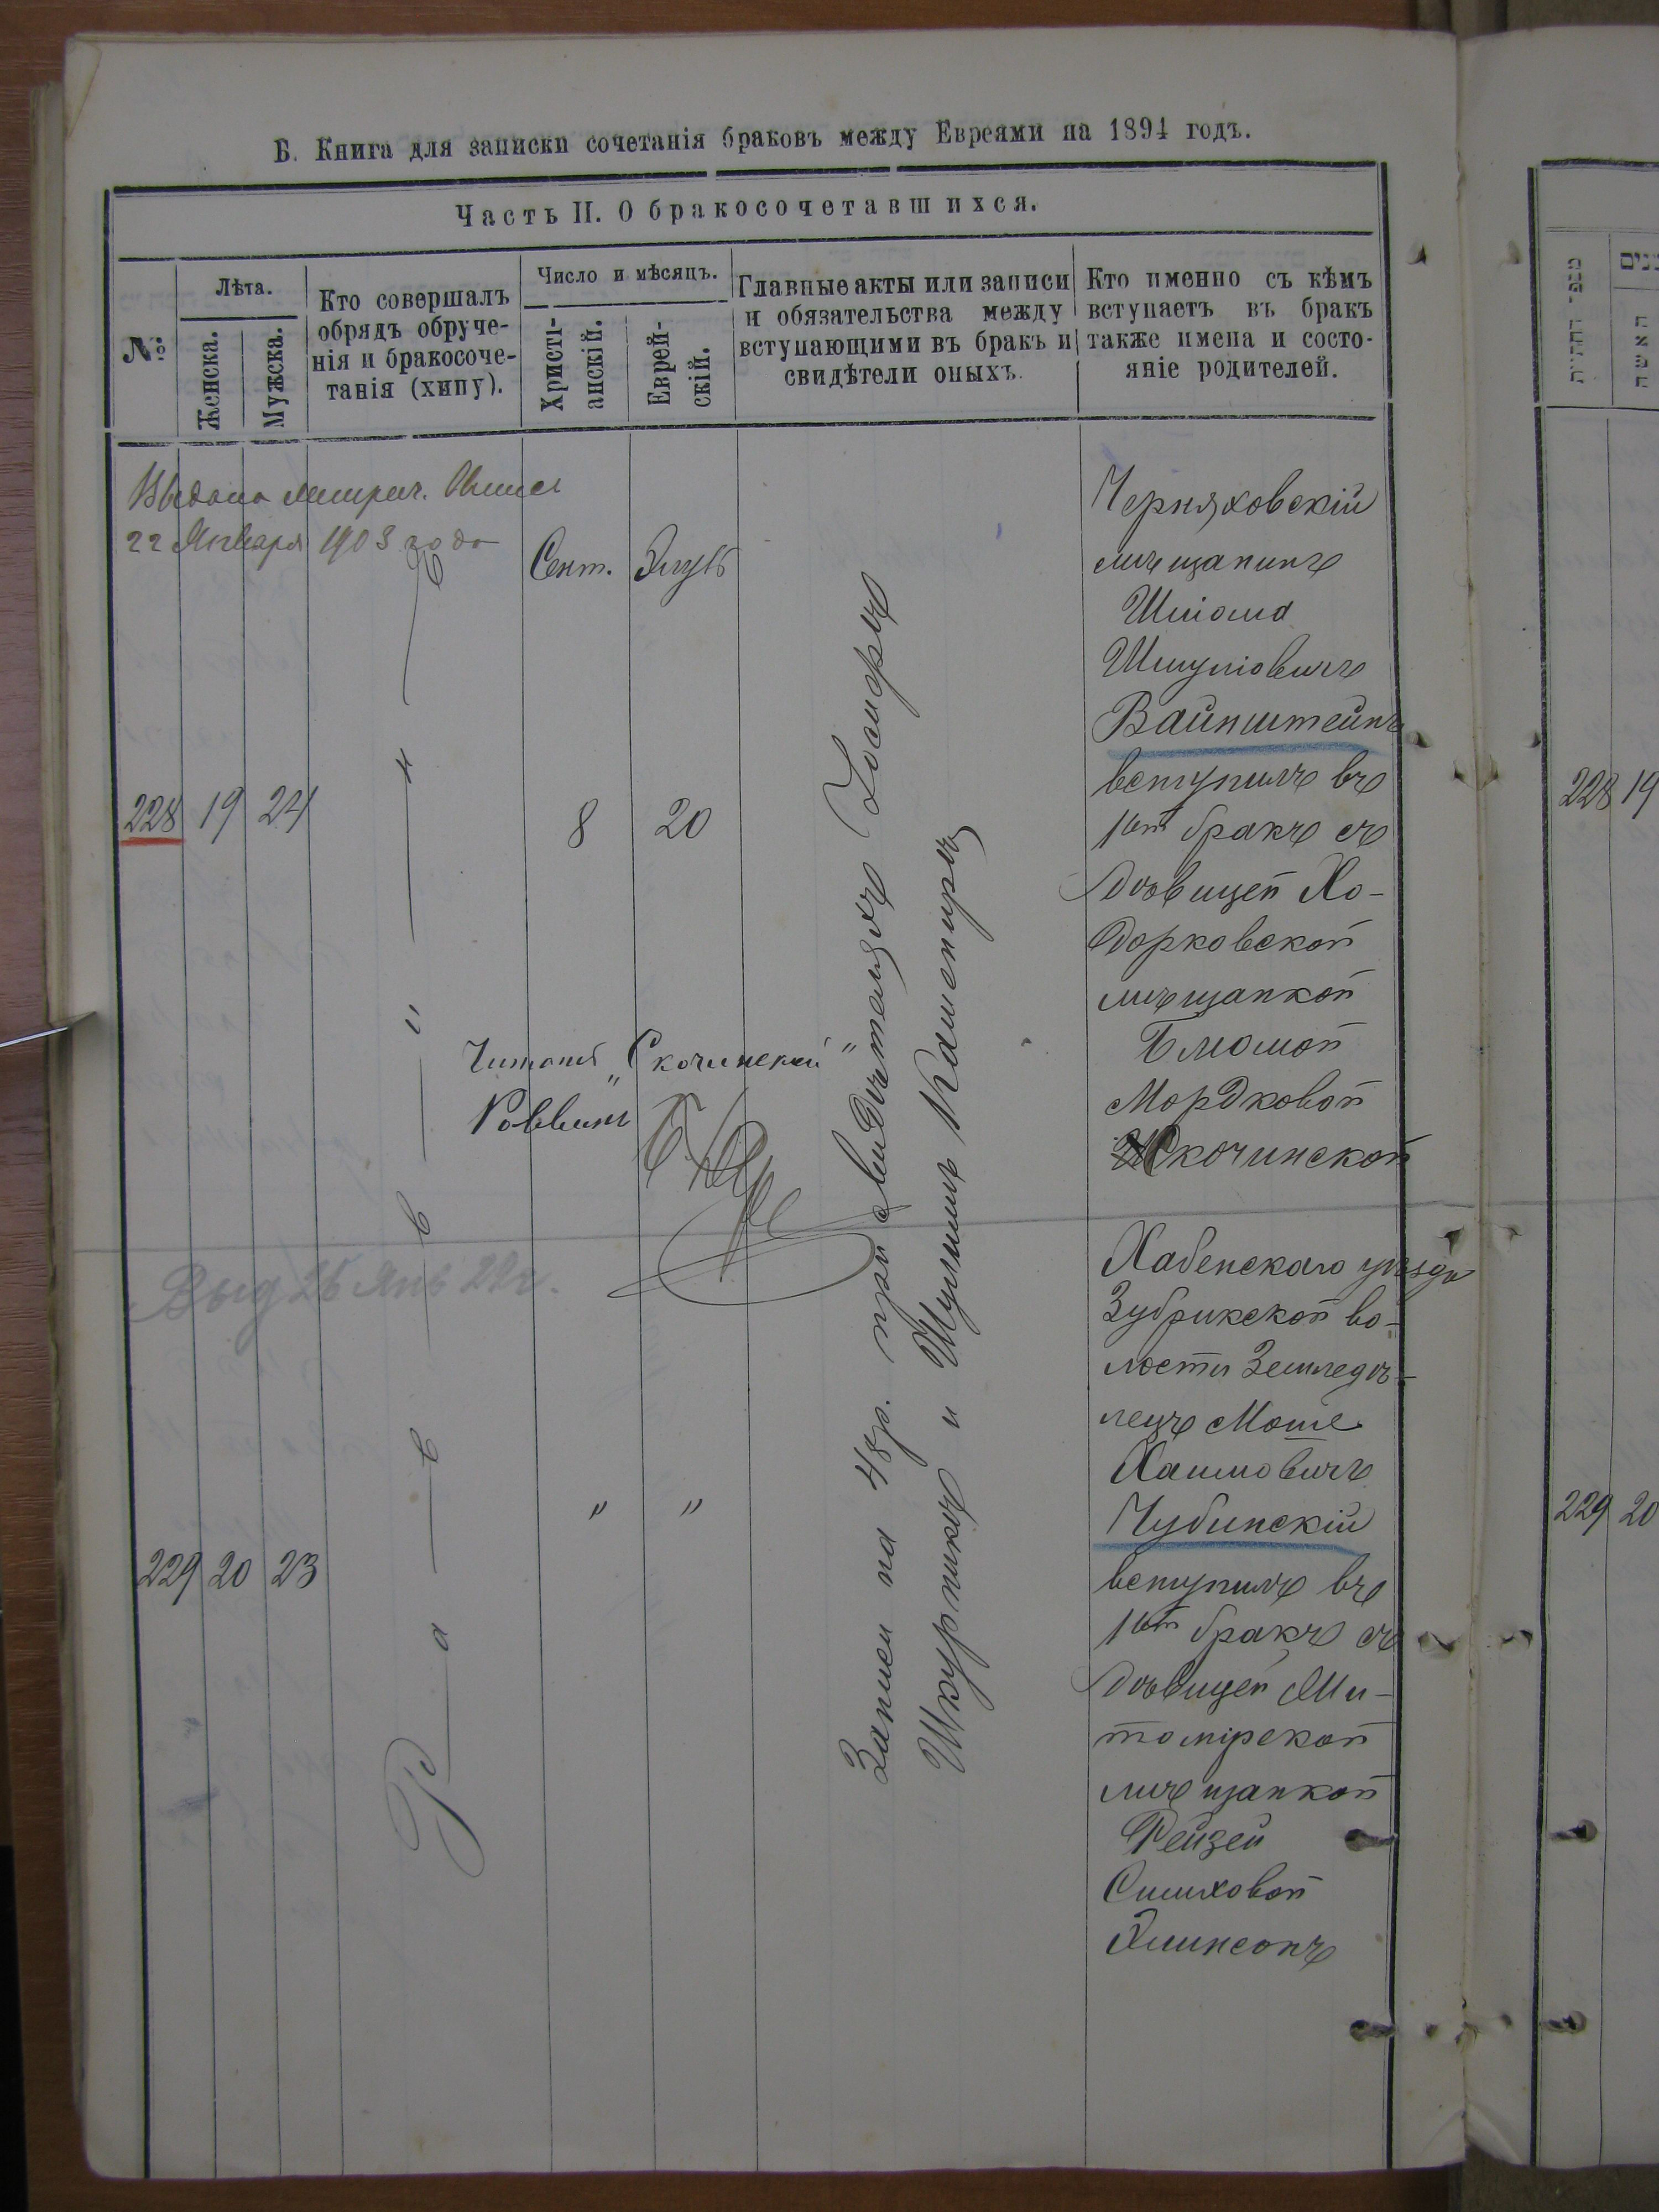 Б. Книга для записки сочетанія браковъ между Евреями на 1894 годъ.
Часть II. О бракосочетавшихся.
№
Лѣта.
Женска.
Мужска.
Кто совершалъ
обрядъ обруче-
нія и бракосоче-
танія (хипу).
Число и мѣсяцъ.
Христі-
анскій.
Еврей-
скій.
Главные акты или записи
и обязательства между
вступающими въ бракъ и
свидѣтели оныхъ.
Кто именно съ кѣмъ
вступаетъ въ бракъ
также имена и состо-
яніе родителей.
Выдана метрич.
22 Января 1903 года
Сент. Элулъ
228 19 24
8 20
Раввинъ
Запись на 48 р. при свидѣтеляхъ
Шкурникъ и Шулимъ
Черняховскій
мѣщанинъ
Шліома
Шмуліовичъ
Вайнштейнъ
вступилъ въ
1й бракъ съ
дѣвицей Хо-
дорковской
мѣщанкой
Блюмой
Мордковой
Скочинской
Читать „Скочинской“
Раввинъ
Выд 26 Янв 22 г.
229 20 23
" "
Хабенскаго уѣзда
во-
лости Земледѣ-
лецъ Моше
Хаимовичъ
Чубинскій
вступилъ въ
1й бракъ съ
дѣвицей Жи-
томірской
мѣщанкой
Рейзей
Симховой
228 19
229 20